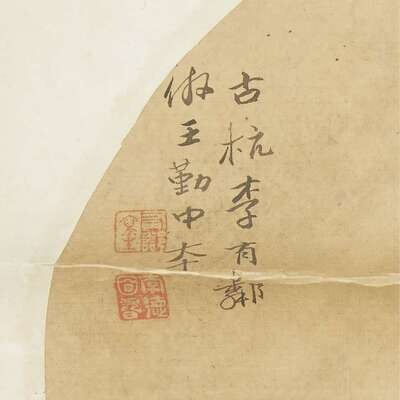 古杭李有鄰
倣王勤中本